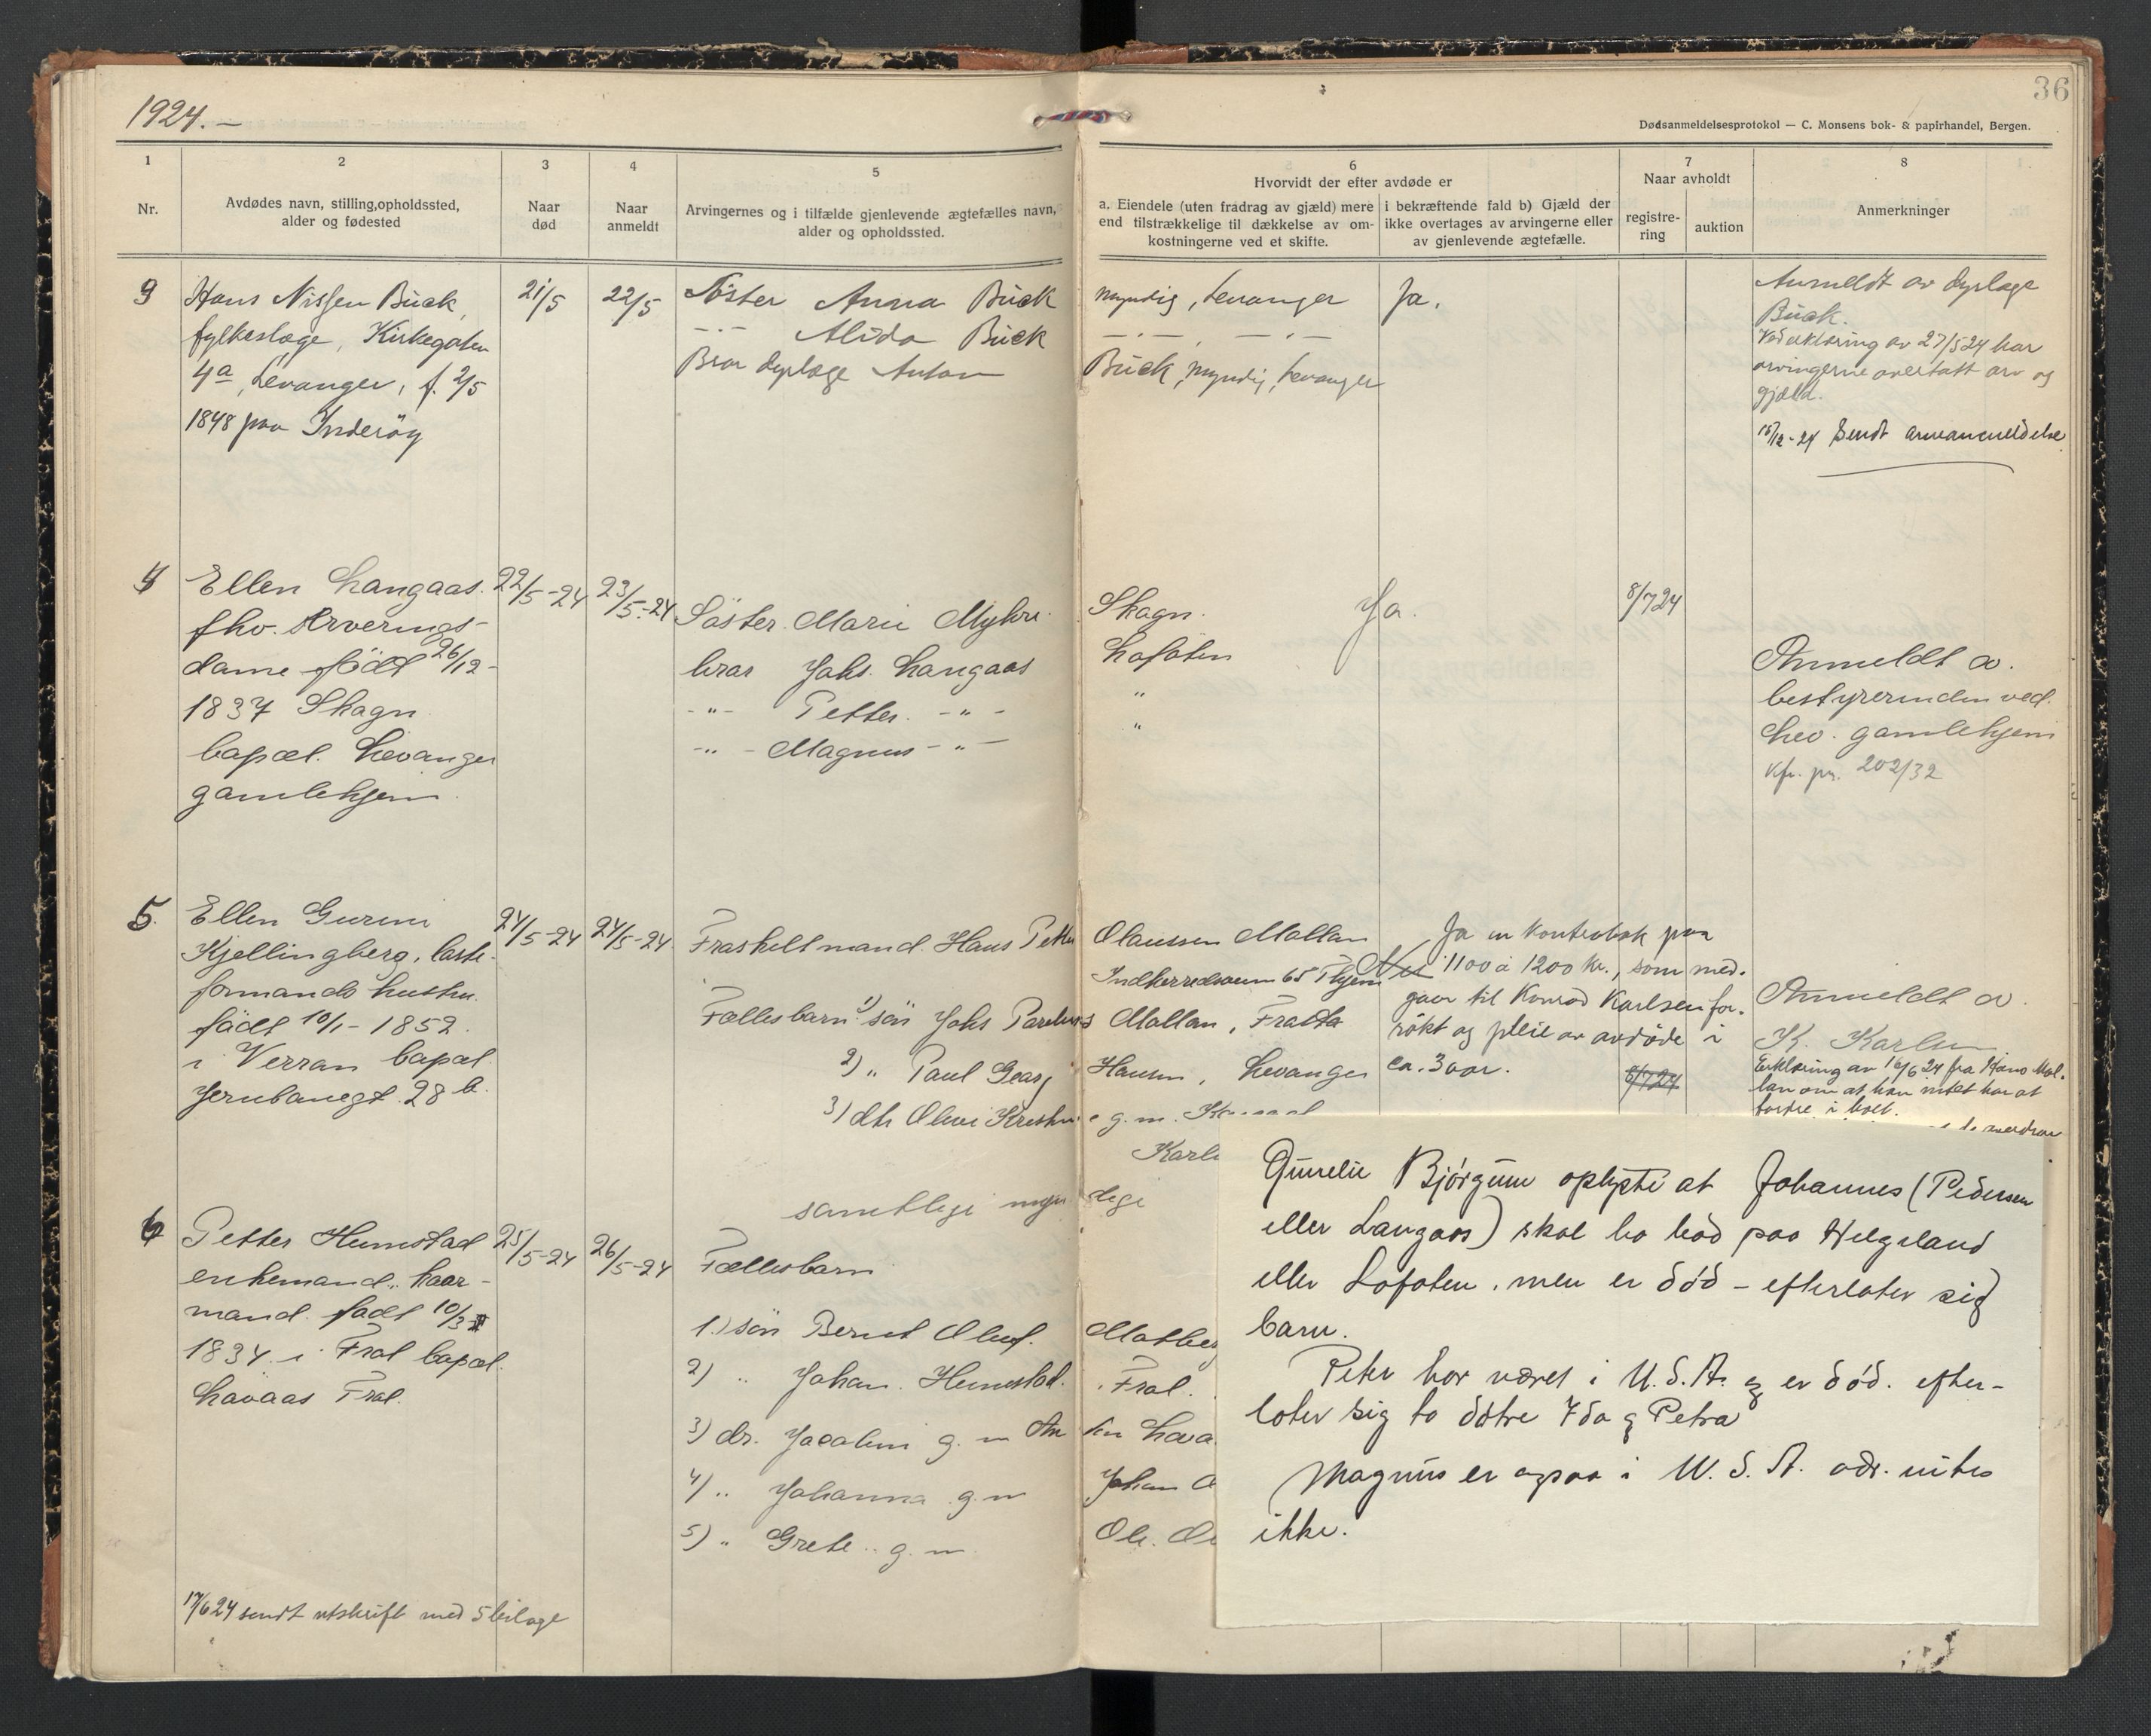 1924.-
36
Dødsanmeldelsesprotokol — C. Monsens bok- & papirhandel, Bergen.
1
2
3
4
5
6
7
8
Nr.
Avdødes navn, stilling, opholdssted,
alder og fødested
Naar
død
Naar
anmeldt
Arvingernes og i tilfælde gjenlevende ægtefælles navn,
alder og opholdssted.
Hvorvidt der efter avdøde er
a. Eiendele (uten fradrag av gjæld) mere
end tilstrækkelige til dækkelse av om-
kostningerne ved et skifte.
i bekræftende fald b) Gjæld der
ikke overtages av arvingerne eller
av gjenlevende ægtefælle.
Naar avholdt
registre-
ring
auktion
Anmerkninger
Hans Nissen Büek
fylkeslæge, Kirkegaten
4a, Levanger, f. 2/5
1848 paa Inderöy
21/5
22/5
Söster Anna Büek myndig, Levanger
-"- Alida Büek -"- -"-
Bror dyrlæge Anton Büek, myndig, Levanger
Ja.
Anmeldt av dyrlæge
Büek.
Ved erklæring av 27/5 24 har
arvingerne overtatt arv og
gjæld.
18/12-24 Sendt arveanmeldelse
4
Ellen Langaas.
fhv. serverings-
dame född 26/12-
1837 Skogn
bopæl. Levanger
gamlehjem.
22/5-24
23/5-24
Söster. Marie Myhre. Skogn.
bror Johs. Langaas Lofoten
-"- Petter. -"- "
-"- Magnus -"- "
Ja.
8/7 24
Anmeldt av.
bestyrerinden ved.
Lev. gamlehjem
kfr. pr. 202/32
5.
Ellen Gurine
Kjellingberg, laste-
formands hustru.
född 10/1-1852.
i Verran bopæl
Jernbanegt. 28 b.
24/5-24
24/5-24.
Fraskelt mand. Hans Petter Olaussen Mollan
Indherredsveien 65 Thjem
Fællesbarn 1) sön Johs Parelius Mollan, Frosta
2) " Paul Georg Hansen, Levanger
3) dtr Oline Kristine g. m. Konrad
Karl
samtlige myndige
Nei
Ja en kontrabok paa
1100 à 1200 kr., som med-
gaar til Konrad Karlsen for
rökt og pleie av avdöde i
ca. 3 aar.
8/7 24
Anmeldt av.
K. Karlsen
Erklæring av 16/6 24 fra Hans Mol-
lan om at han intet har at
fordre i boet.
6
Petter Hemstad
enkemand, kaar-
mand. född 10/3
1834. i Frol bopæl.
Havaas Frol.
25/5-24
26/5-24
Fællesbarn
1.) sön Bernt Oluf.
2) " Johan. Hemstad. Frol.
3) dr. Jacobine g. m
4) " Johanna g. m Johan
5) " Grete g. m. Ole.
17/6 24 sendt utskrift med 5 bilage
Gurelie Bjørgum oplyste at Johannes (Pedersen
eller Langaas) skal ha bod paa Helgeland
eller Lofoten, men er død - efterlater sig
barn.
Peter har været i U.S.A. og er død. efter-
later sig to døtre Ida og Petra
Magnus er ogsaa i U.S.A. adr. vites
ikke.